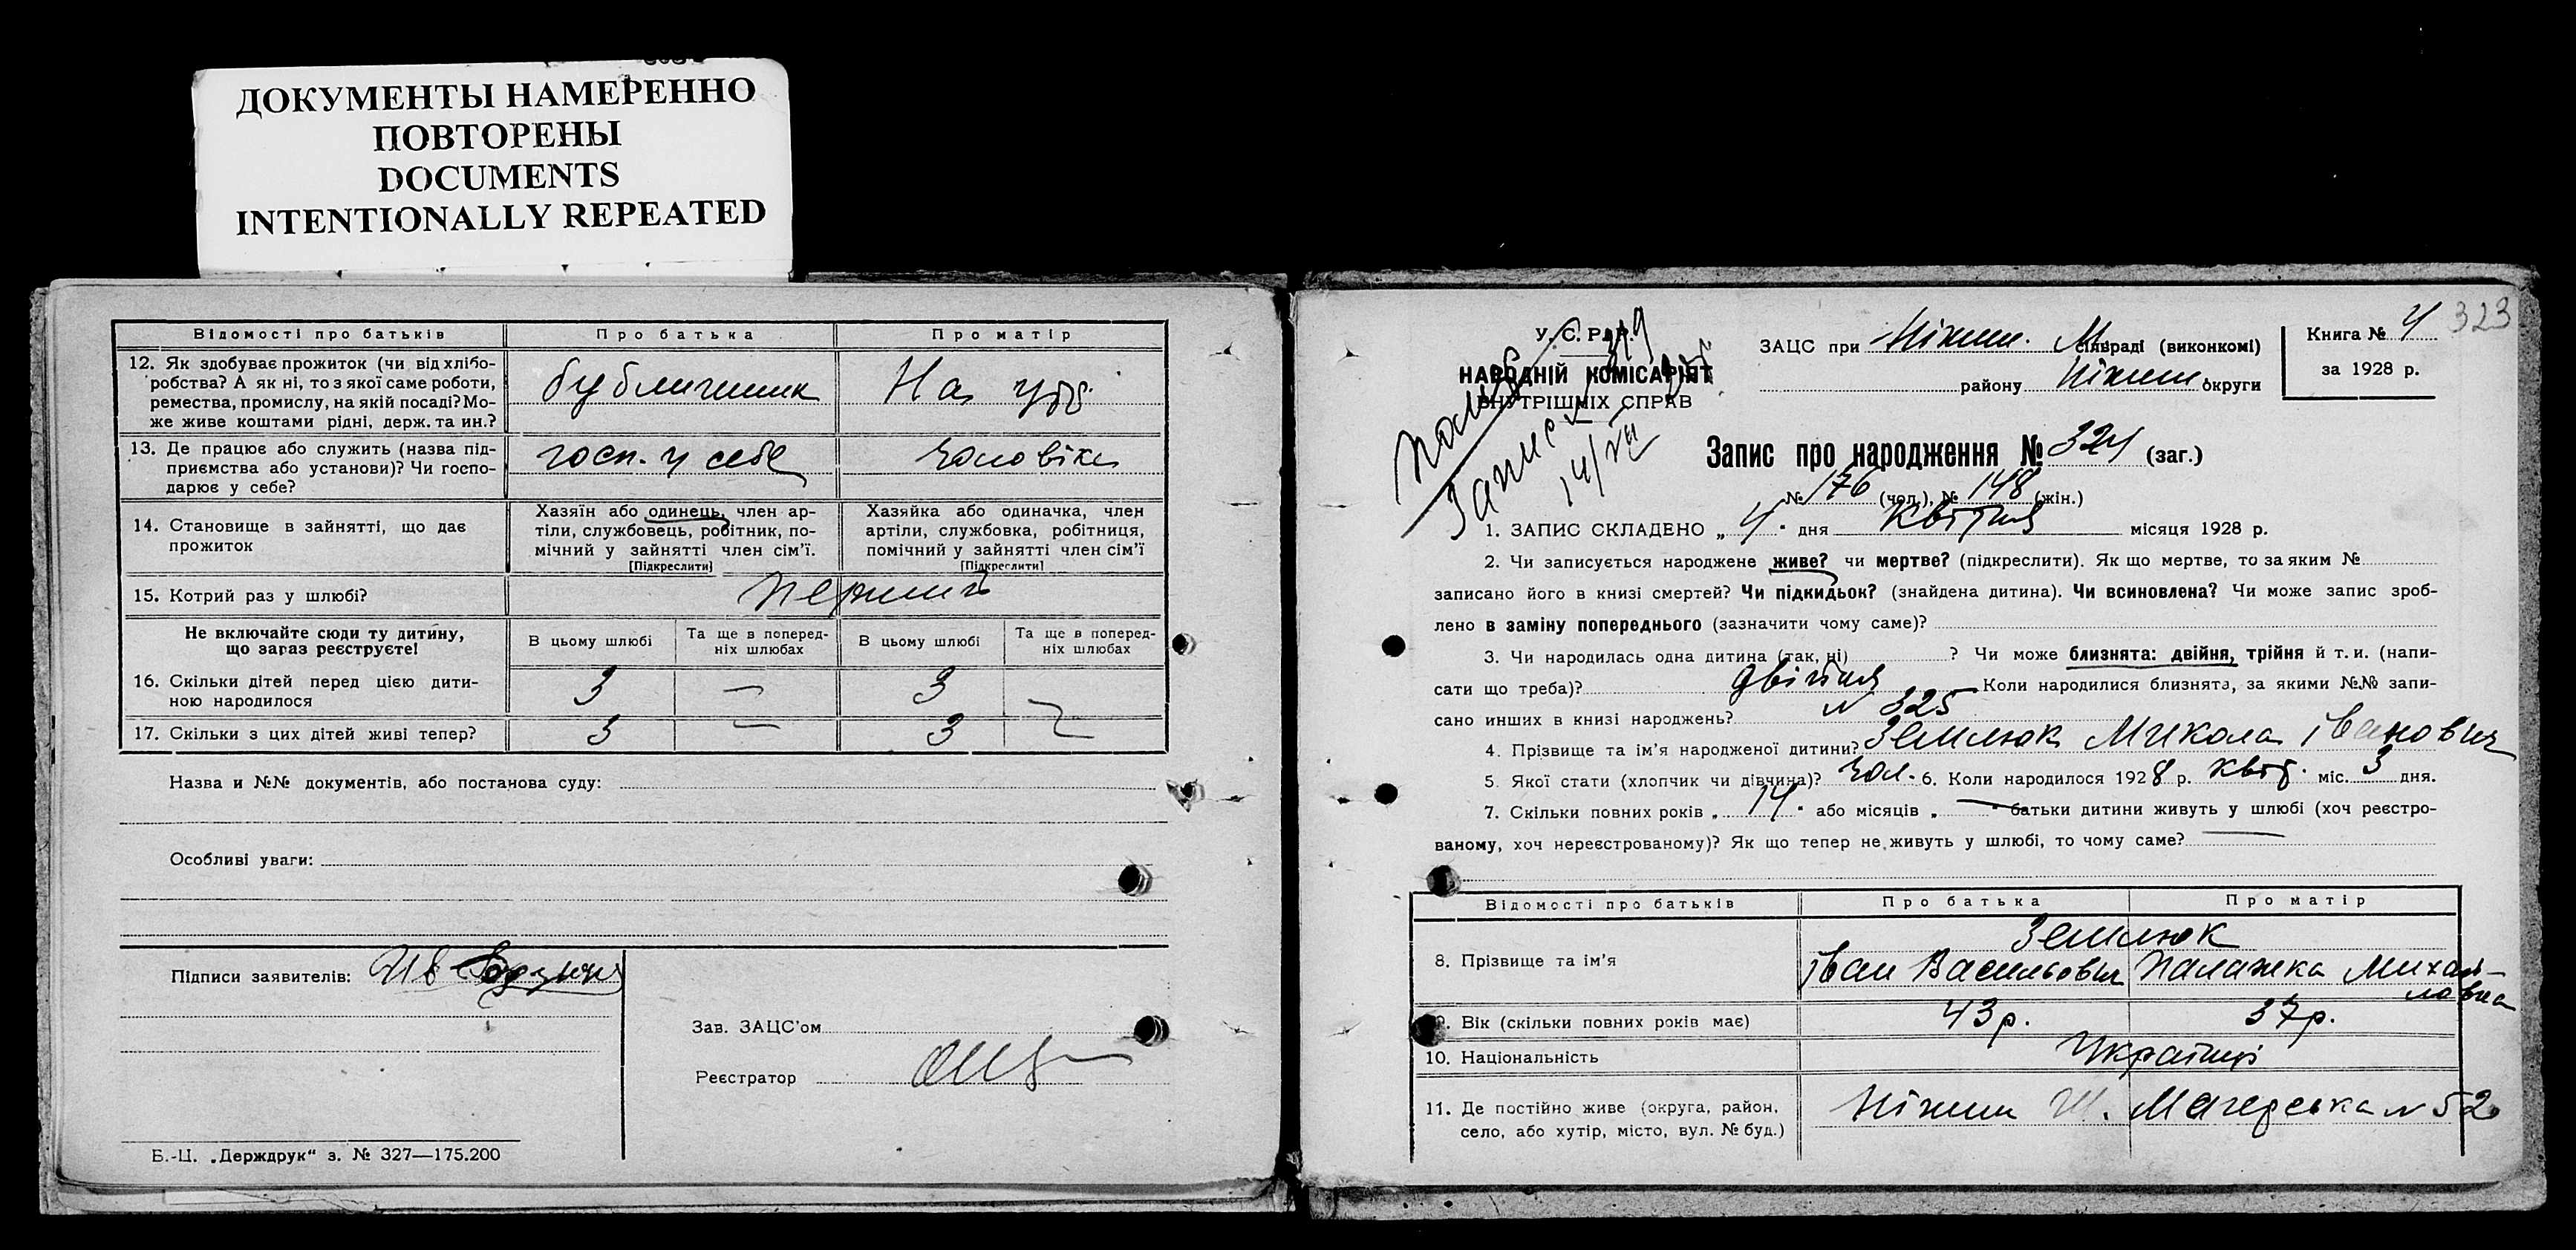 ДОКУМЕНТЫ НАМЕРЕННО
ПОВТОРЕНЫ
DOCUMENTS
INTENTIONALLY REPEATED
Відомості про батьків Про батька Про матір
12. Як здобуває прожиток (чи від хлібо-
робства? А як ні, то з якої саме роботи,
ремества, промислу, на якій посаді? Мо-
же живе коштами рідні, держ. та ин.?
бубличник На утр.
13. Де працює або служить (назва під-
приємства або установи)? Чи госпо-
дарює у себе?
госп. у себе чоловіка
14. Становище в зайнятті, що дає
прожиток
Хазяїн або одинець, член ар-
тіли, службовець, робітник, по-
мічний у зайнятті член сім'ї.
[Підкреслити]
Хазяйка або одиначка, член
артіли, службовка, робітниця,
помічний у зайнятті член сім'ї
[Підкреслити]
15. Котрий раз у шлюбі? перший
Не включайте сюди ту дитину,
що зараз реєструєте!
В цьому шлюбі Та ще в поперед-
ніх шлюбах В цьому шлюбі Та ще в поперед-
ніх шлюбах
16. Скільки дітей перед цією дити-
ною народилося 3 — 3
17. Скільки з цих дітей живі тепер? 3 — 3
Назва и №№ документів, або постанова суду:
Особливі уваги:
Підписи заявителів: Ив
Зав. ЗАЦС'ом
Реєстратор
Б.-Ц. „Держдрук“ з. № 327—175.200
323
У. С. Р. Р.
НАРОДНІЙ КОМІСАРІЯТ
ВНУТРІШНІХ СПРАВ
Запис
14/VII
ЗАЦС при Ніжин. М. сільраді (виконкомі)
району Ніжин. округи
Книга № 4
за 1928 р.
Запис про народження № 324 (заг.)
№ 176 (чол.), № 148 (жін.)
1. ЗАПИС СКЛАДЕНО „ 4 “ дня Квітня місяця 1928 р.
2. Чи записується народжене живе? чи мертве? (підкреслити). Як що мертве, то за яким №
записано його в книзі смертей? Чи підкидьок? (знайдена дитина). Чи всиновлена? Чи може запис зроб-
лено в заміну попереднього (зазначити чому саме)?
3. Чи народилась одна дитина (так, ні) ? Чи може близнята: двійня, трійня й т. и. (напи-
сати що треба)? двійня Коли народилися близнята, за якими №№ запи-
сано инших в книзі народжень? № 325
4. Прізвище та ім'я народженої дитини? Земляк Микола Іванович
5. Якої стати (хлопчик чи дівчина)? чол. 6. Коли народилося 1928 р. квіт. міс. 3 дня.
7. Скільки повних років „ 14 “ або місяців „ — “ батьки дитини живуть у шлюбі (хоч реєстро-
ваному, хоч нереєстрованому)? Як що тепер не живуть у шлюбі, то чому саме? —
Відомості про батьків Про батька Про матір
8. Прізвище та ім'я Земляк
Іван Васильович Палажка Михай-
ловна
9. Вік (скільки повних років має) 43 р. 37 р.
10. Національність Українці
11. Де постійно живе (округа, район,
село, або хутір, місто, вул. № буд.)
Ніжин Ш. Магерська № 52